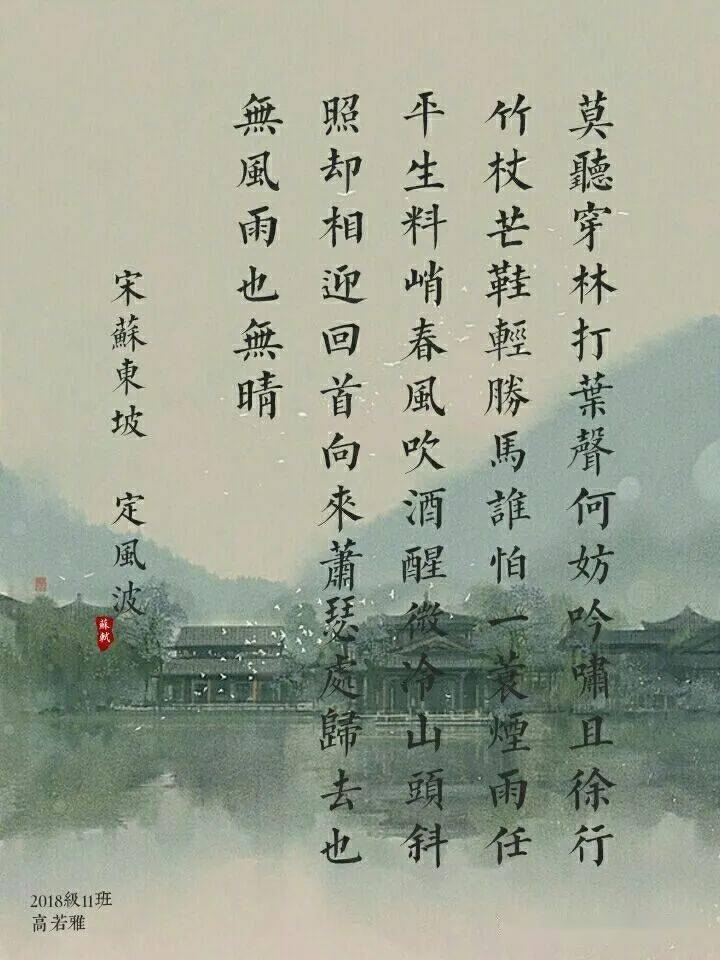 莫聽穿林打葉聲何妨吟嘯且徐行
竹杖芒鞋輕勝馬誰怕一蓑煙雨任
平生料峭春風吹酒醒微冷山頭斜
照却相迎回首向來蕭瑟處歸去也
無風雨也無晴
宋蘇東坡 定風波
蘇軾
2018級11班
高若雅